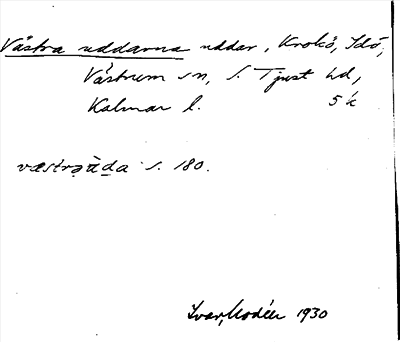 Västra uddarna uddar, Krokö, Idö,
Västrum sn, S. Tjust hd,
Kalmar l. 5 k
væstrə ùda s. 180.
Ivar Modéer 1930